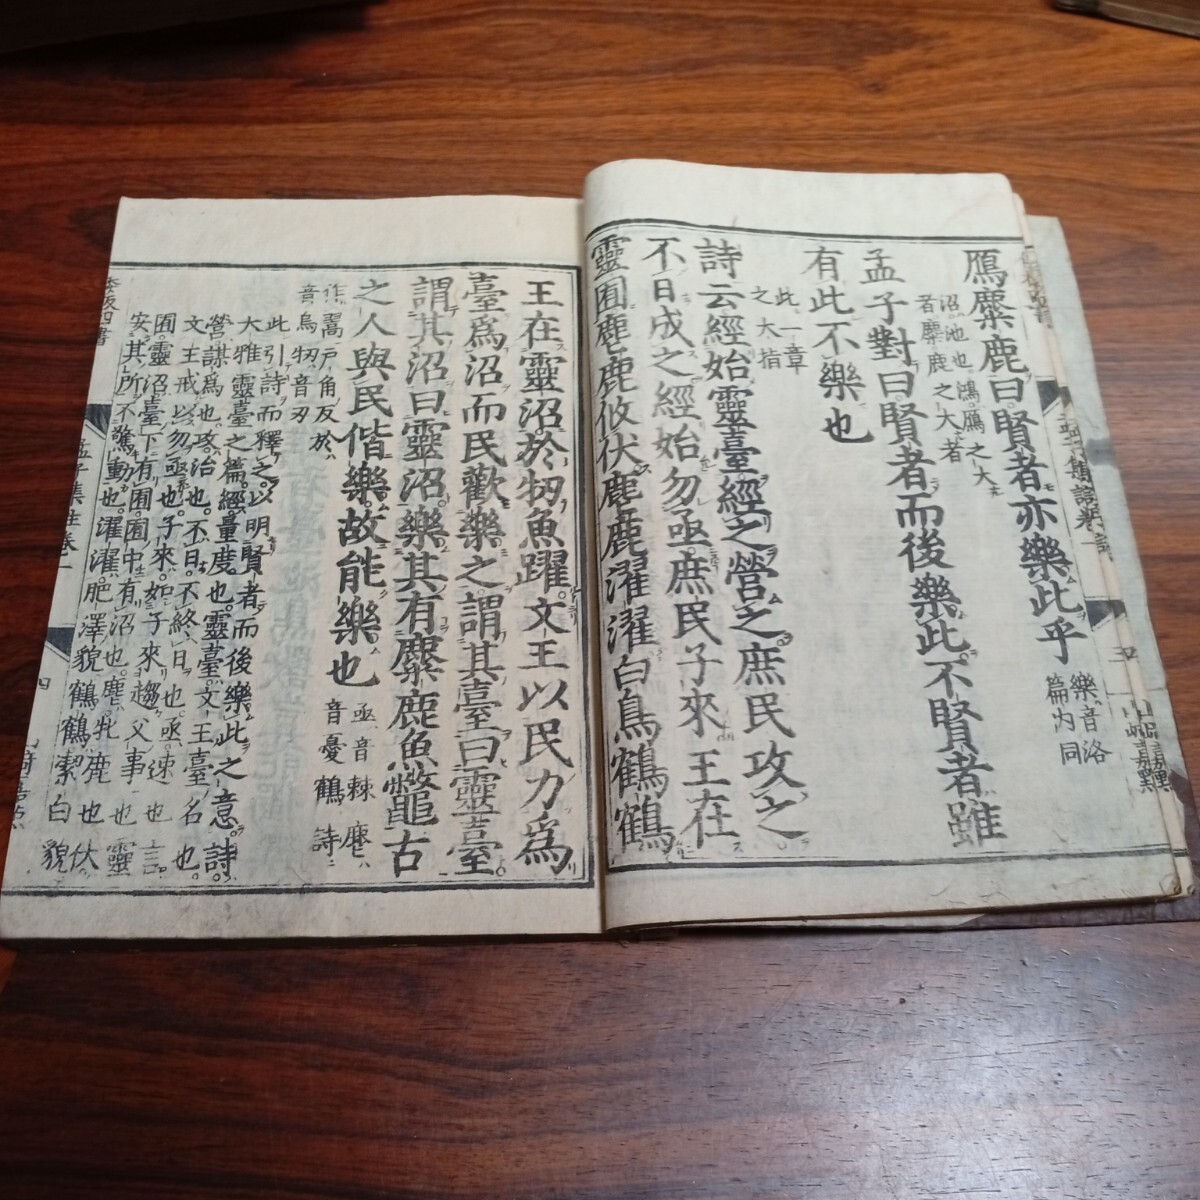 鴈麋鹿曰賢者亦樂此乎樂音洛
篇内同
沼池也鴻鴈之大
者麋鹿之大者
孟子對曰賢者而後樂此不賢者雖
有此不樂也
此一章
之大指
詩云經始靈臺經之營之庶民攻之
不日成之經始勿亟庶民子來王在
靈囿麀鹿攸伏麀鹿濯濯白鳥鶴鶴
王在靈沼於牣魚躍文王以民力爲
臺爲沼而民歡樂之謂其臺曰靈臺
謂其沼曰靈沼樂其有麋鹿魚鼈古
之人與民偕樂故能樂也
亟音棘麀
音憂鶴詩
作翯戸角反於
音烏牣音刃
此引詩而釋之以明賢者而後樂此之意詩
大雅靈臺之篇經量度也靈臺文王臺名也
營謀爲也攻治也不日不終日也亟速也言
文王戒以勿亟也子來如子來趨父事也靈
囿靈沼臺下有囿囿中有沼也麀牝鹿也伏
安其所不驚動也濯濯肥澤貌鶴鶴潔白貌
孟子集註卷一
四